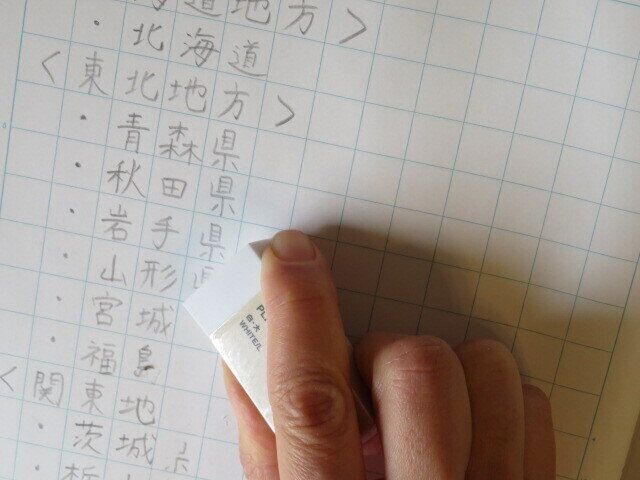 道地方>
・北海道
<東北地方>
・青森県
・秋田県
・岩手県
・山形県
・宮城
・福島
<関東地
・茨城
白・大
WHITE/L